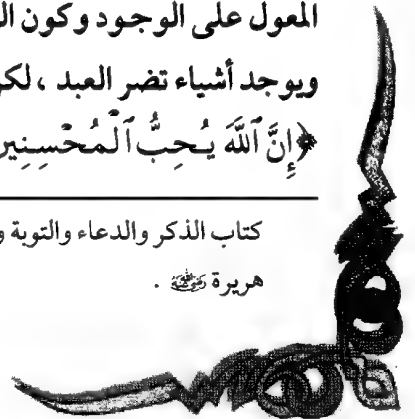 المعول على الوجود وكون
ويوجد أشياء تضر العبد ،
﴿إِنَّ ٱللَّهَ يُحِبُّ ٱلْمُحْسِنِين
كتاب الذكر والدعاء والتوبة و
هريرة رضي الله عنه .